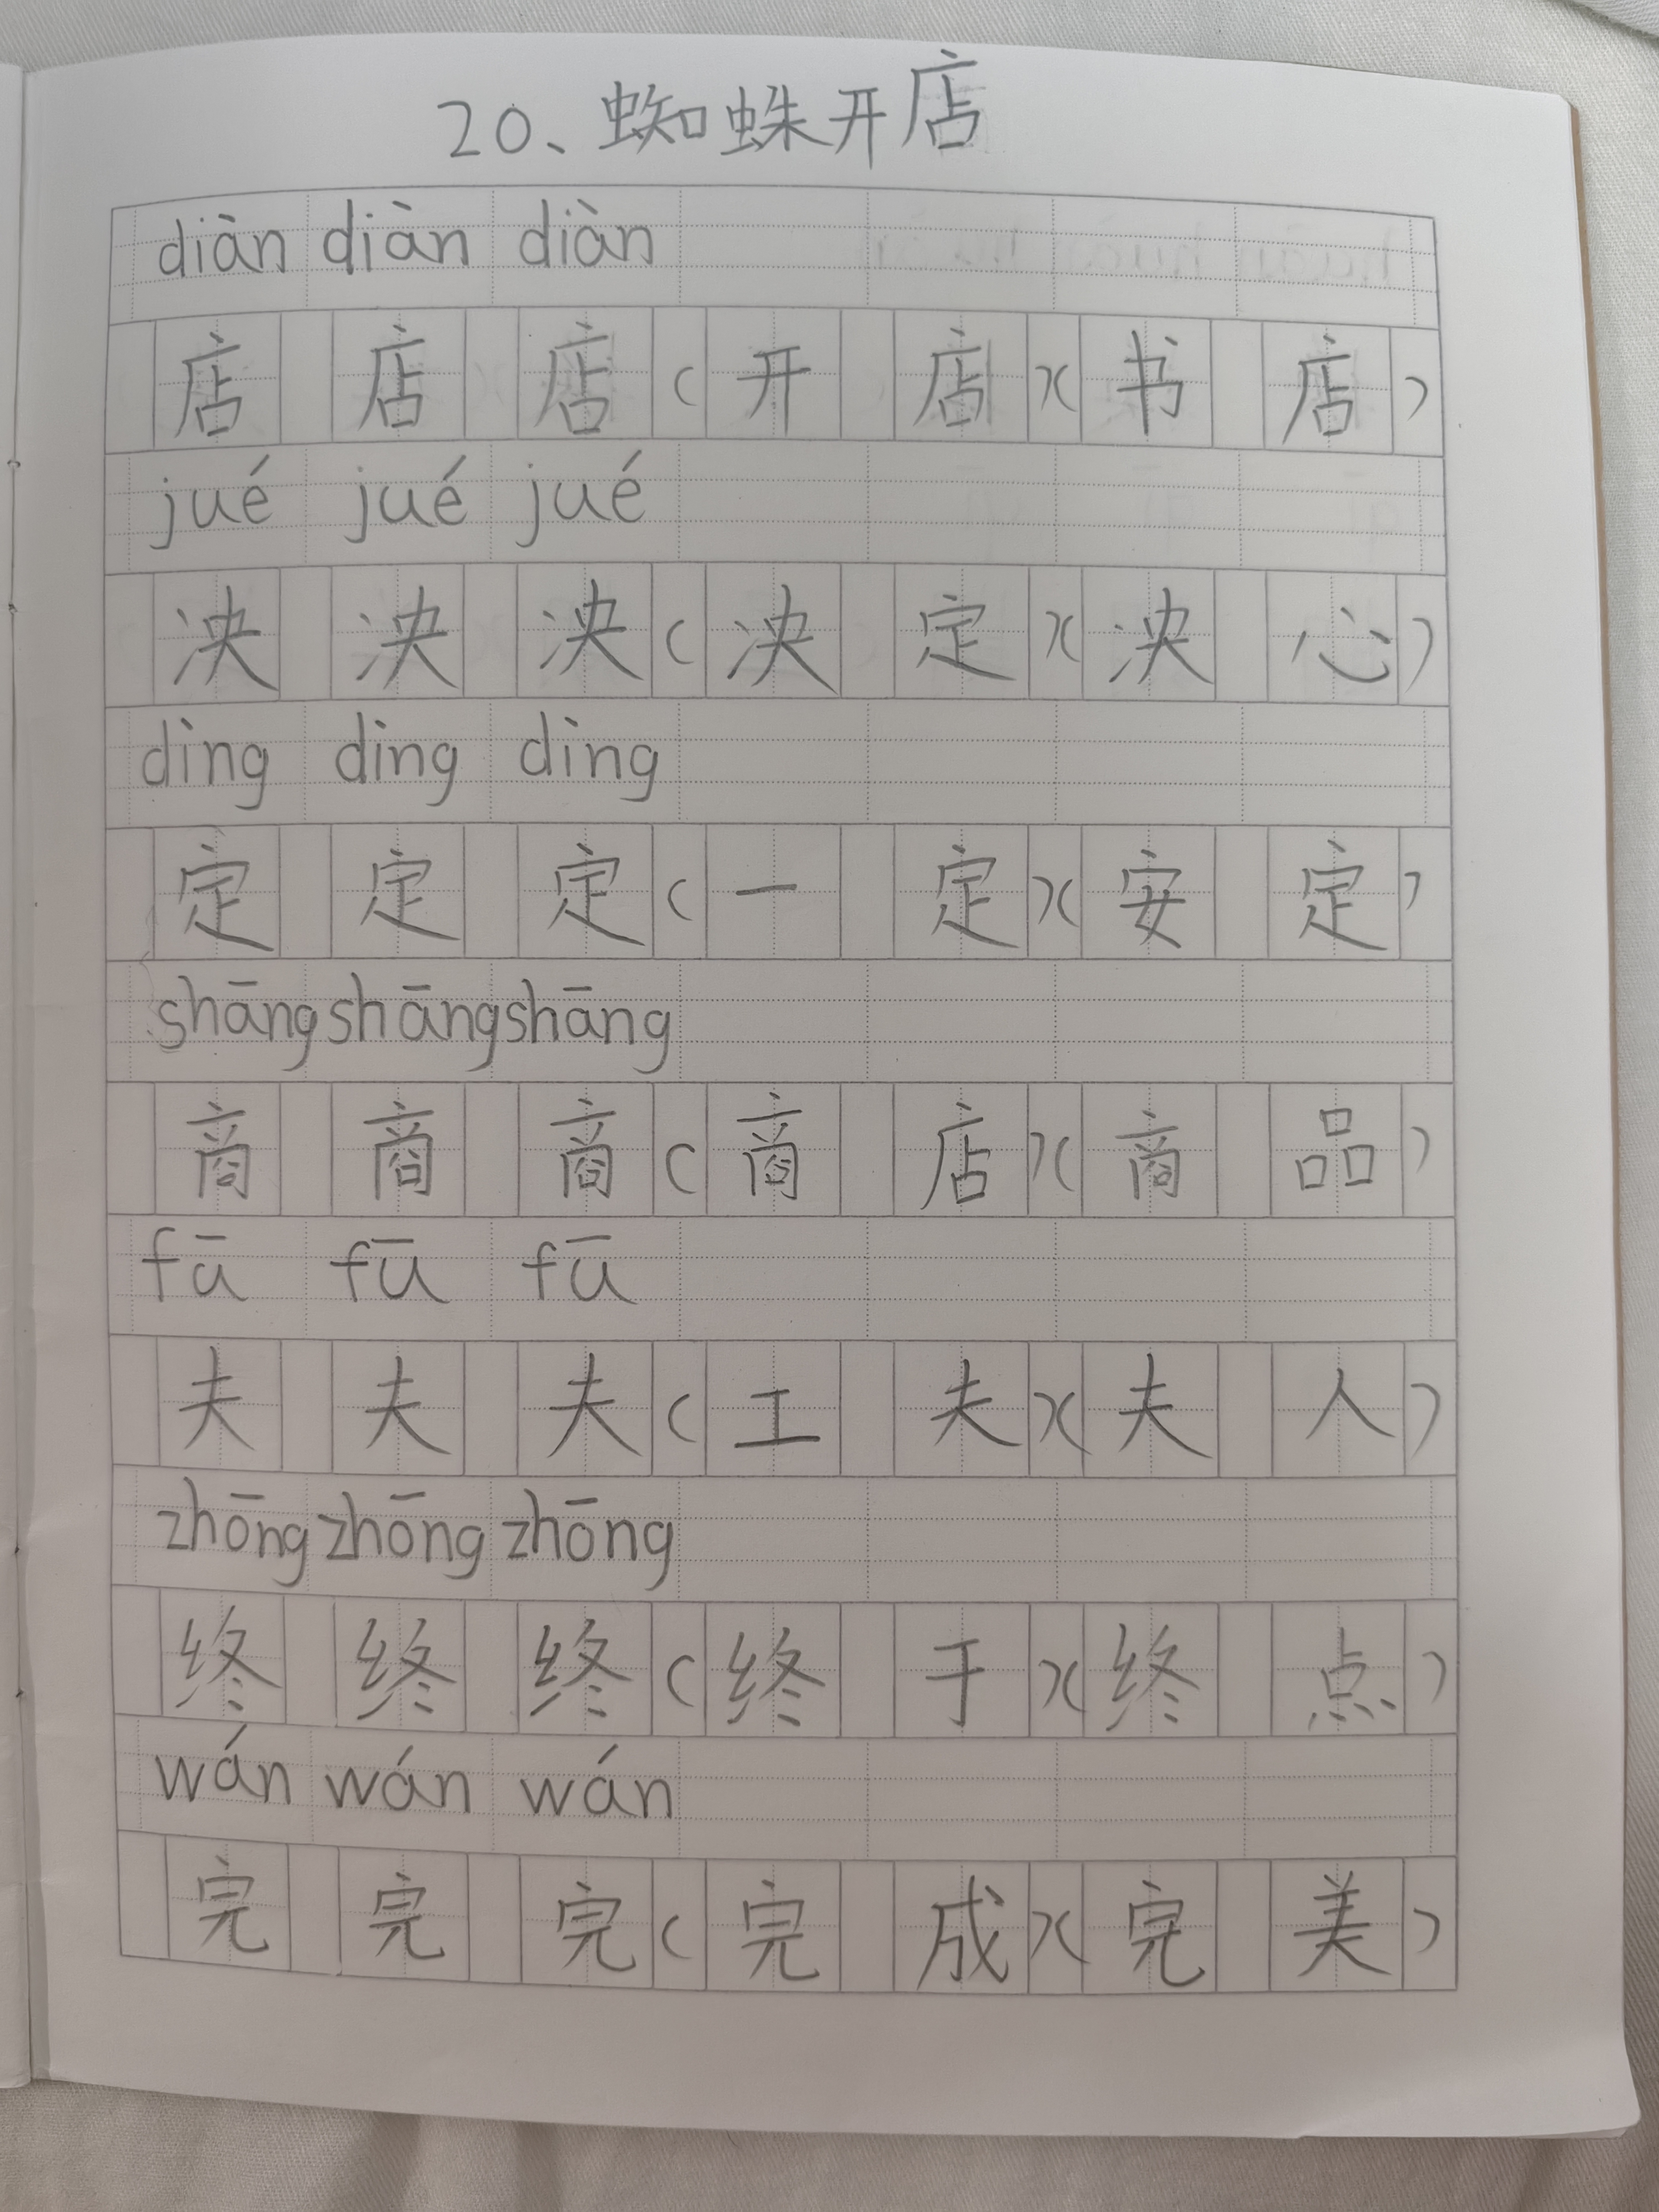 20、蜘蛛开店
diàn diàn diàn
店 店 店（开 店）（书 店）
jué jué jué
决 决 决（决 定）（决 心）
dìng dìng dìng
定 定 定（一 定）（安 定）
shāng shāng shāng
商 商 商（商 店）（商 品）
fū fū fū
夫 夫 夫（工 夫）（夫 人）
zhōng zhōng zhōng
终 终 终（终 于）（终 点）
wán wán wán
完 完 完（完 成）（完 美）